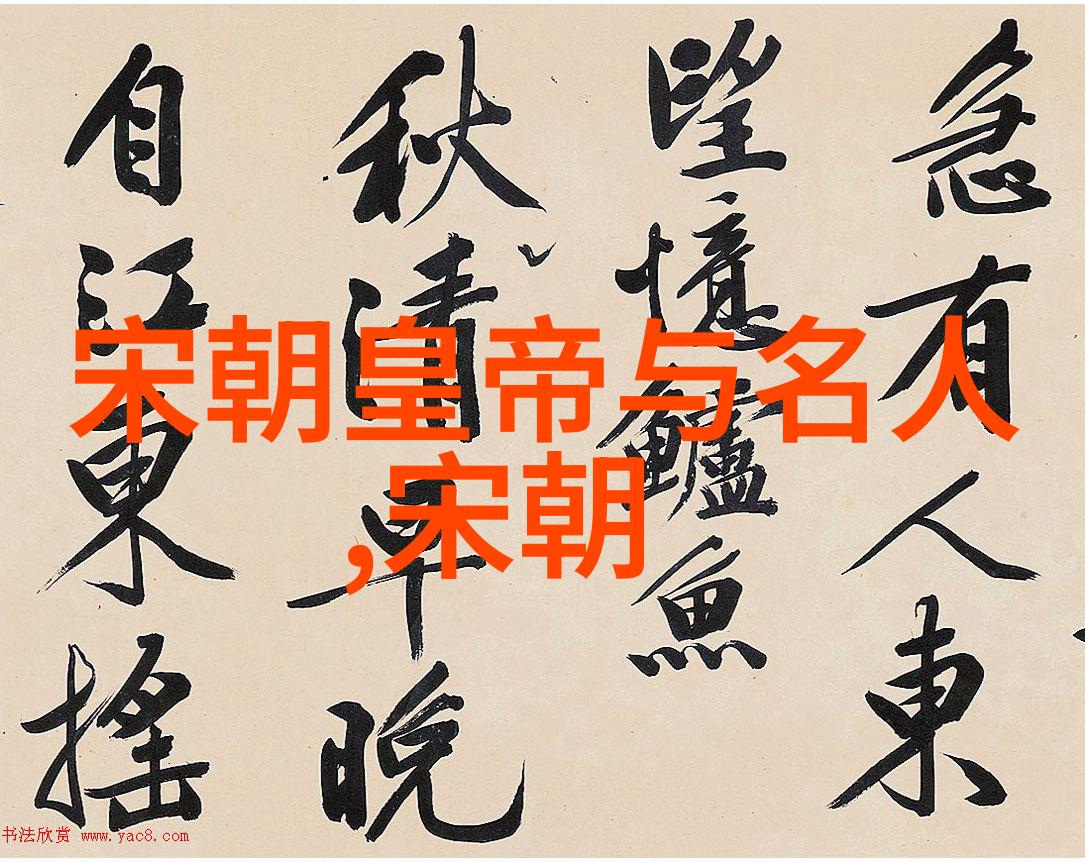 急有人東
望憶鱸魚
秋清早晚
自江東搖
宋朝皇帝与名人
,宋朝
书法欣赏 www.yac8.com